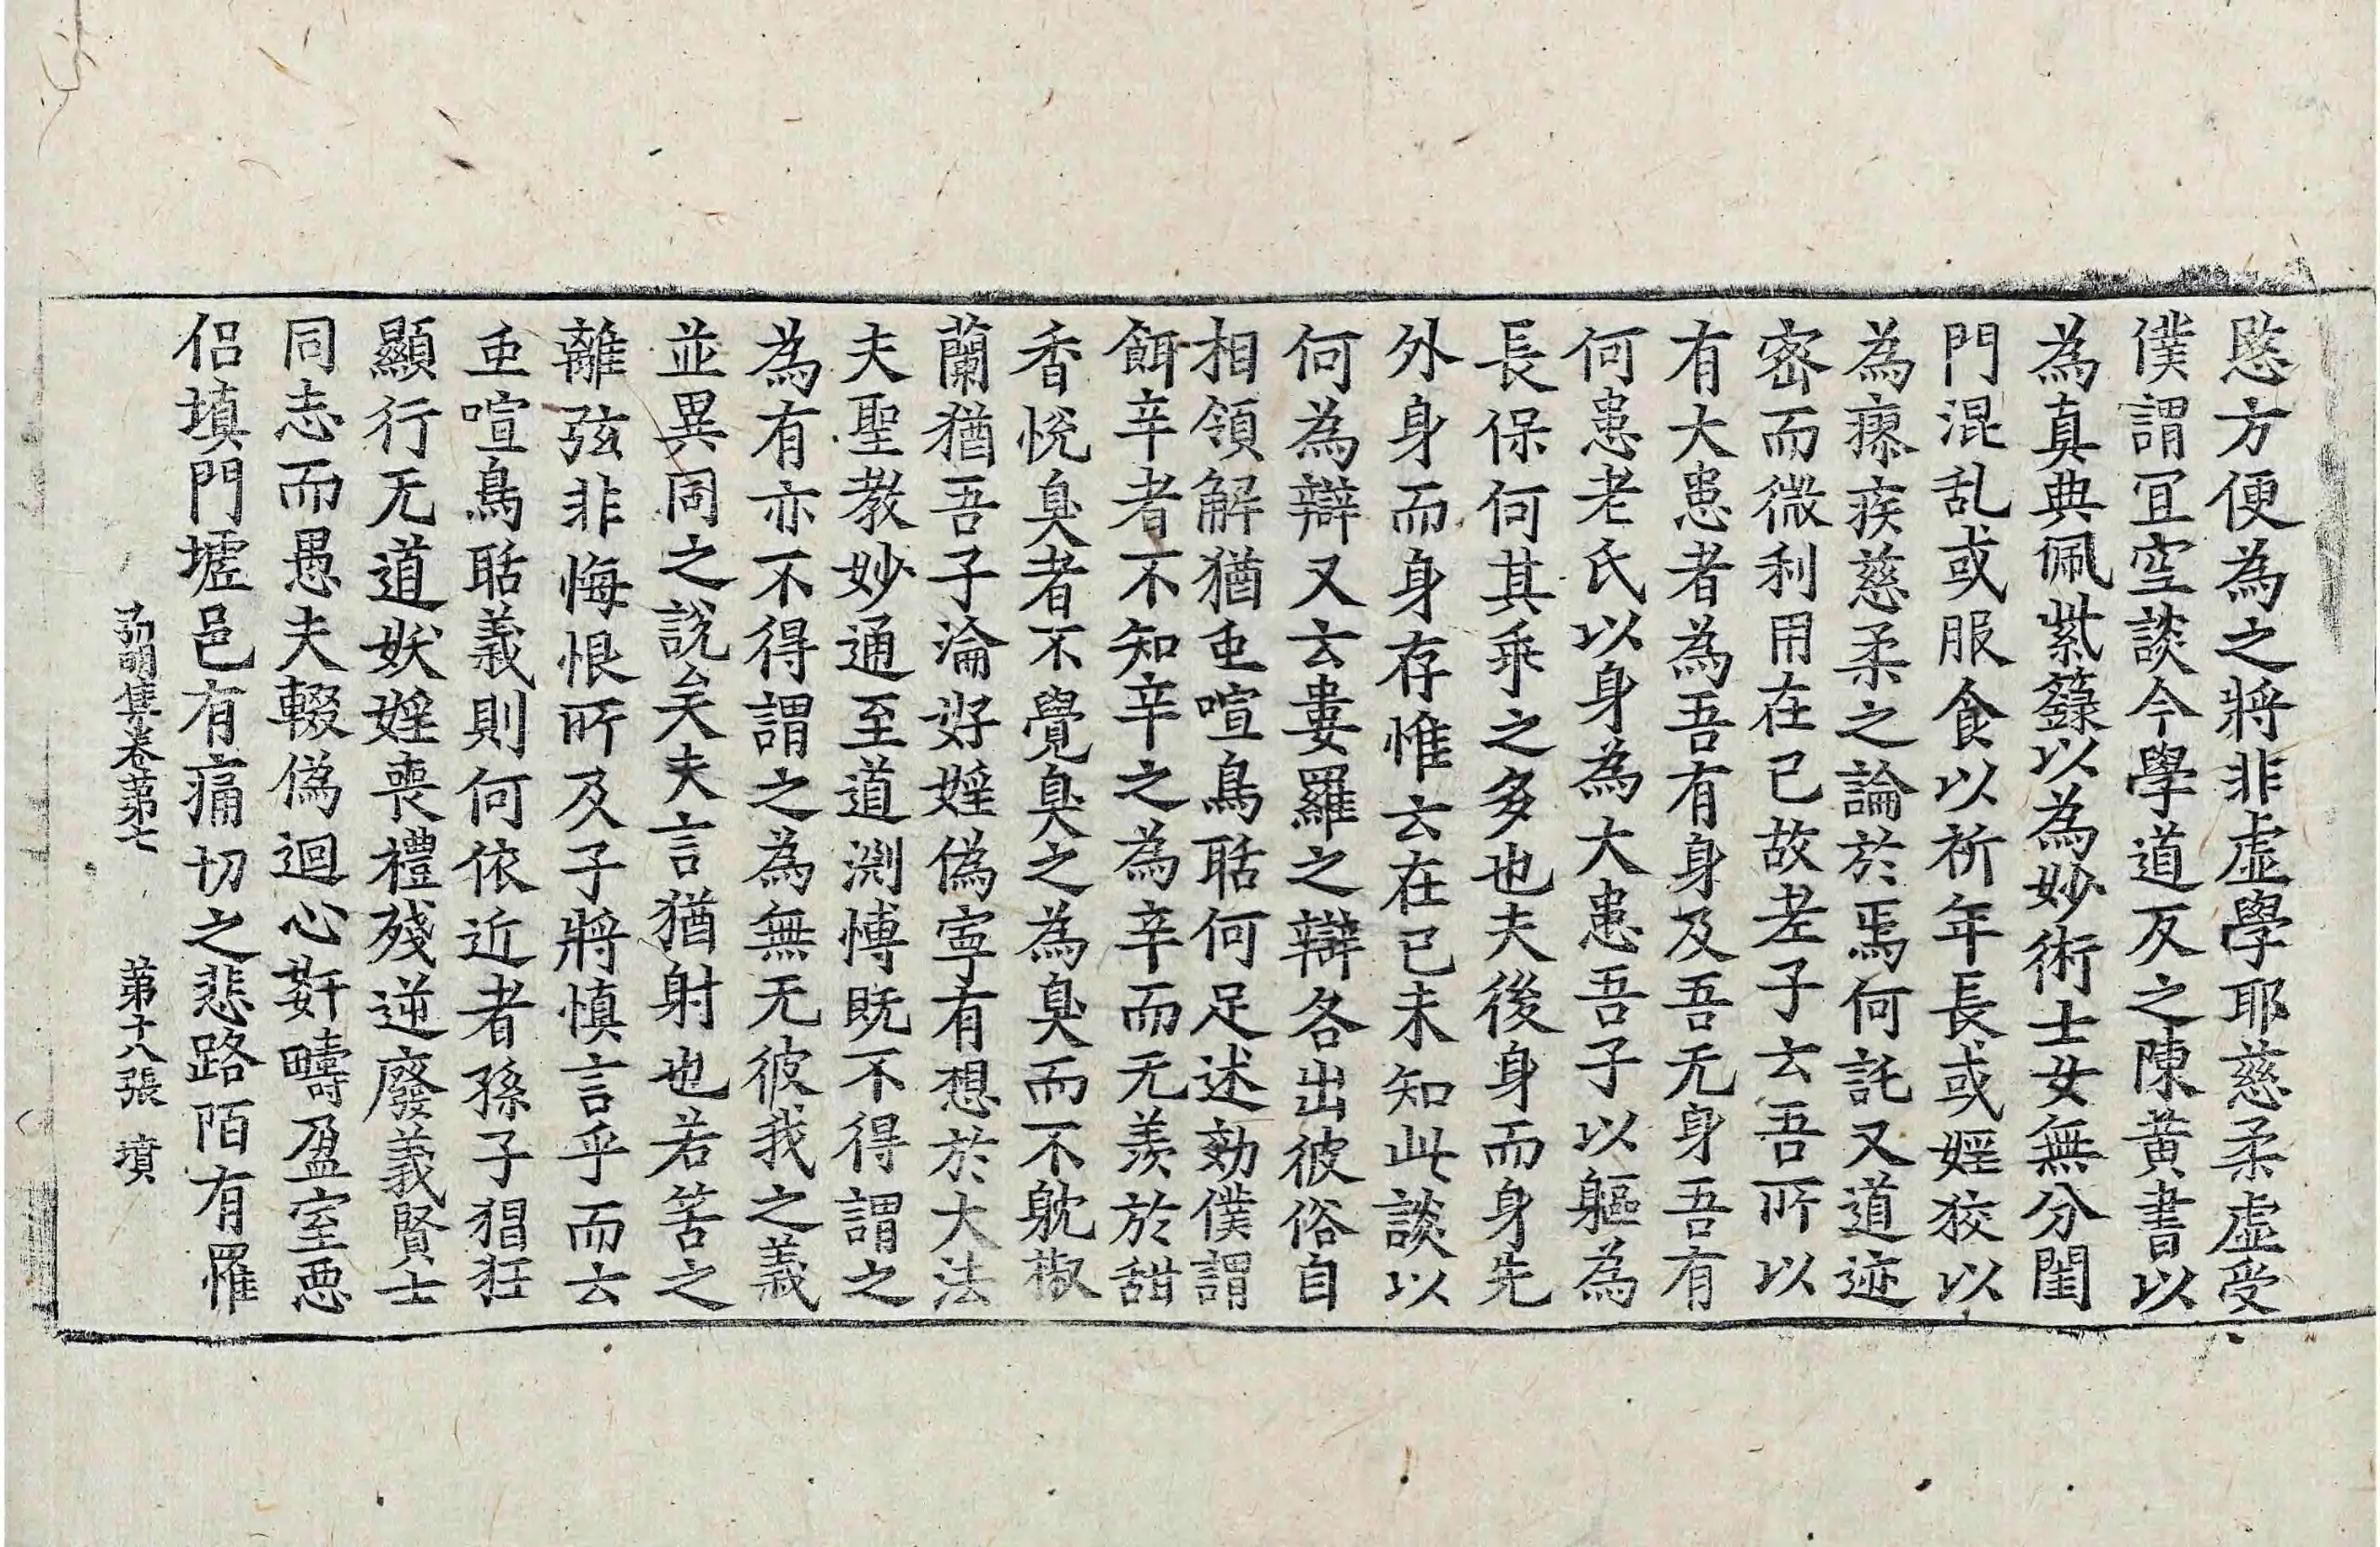 愍方便為之將非虛學耶慈柔虛受
僕謂冝空談今學道反之陳黃書以
為真典佩紫籙以為妙術士女無分閨
門混乱或服食以祈年長或婬狡以
為瘵疾慈柔之論於焉何託又道迹
密而微利用在已故老子云吾所以
有大患者為吾有身及吾无身吾有
何患老氏以身為大患吾子以軀為
長保何其乖之多也夫後身而身先
外身而身存惟云在已未知此談以
何為辯又云婁羅之辯各出彼俗自
相領解猶䖝喧鳥聒何足述効僕謂
餌辛者不知辛之為辛而无羨於甜
香悅臭者不覺臭之為臭而不躭椒
蘭猶吾子淪好婬偽寧有想於大法
夫聖教妙通至道渊博既不得謂之
為有亦不得謂之為無无彼我之義
並異同之說矣夫言猶射也若筈之
離弦非悔恨所及子將慎言乎而云
䖝喧鳥聒義則何依近者孫子猖狂
顯行无道妖婬喪禮殘逆廢義賢士
同志而愚夫輟偽迴心姧疇盈室惡
侣填門墟邑有痛切之悲路陌有罹
弘明集卷第七 第十八張 墳